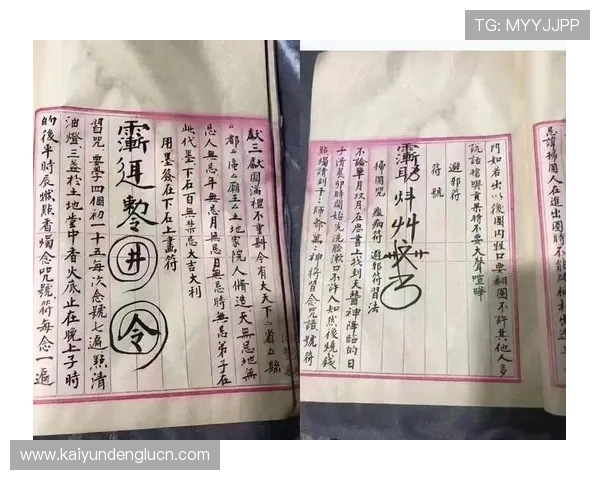 TG: MYYJJPP
獻三獻圓滿禮不重斟今有大天下 省 縣
都 廟王 土地家院人脩造天無忌地無
忌人無忌年無忌月無忌日無忌時無忌弟子在
此代墨下石百無禁忌大吉大利
用墨簽在下石上畫符
敕令
井
令
習咒要學四個初一十五每次念號七遍點清
油燈三盞於土地堂中香火底止在晚上子時
的後半時辰點香燭念咒號符每念一遍
忌諱掃園人在進出園時不能
門如若出以後園內程口要翻園不許其他人多
說話搶與責業將不要大聲喧嘩
避邪符
符號
掃園咒 瘟病符 避邪符習法
不論單月双月在歷書上找到天醫神降臨的日
子清晨卯時開始先洗臉漱口不許人如然後燒錢
點燭請到 師命萬神將習念咒語號符
www.kaiyundenglucn.com